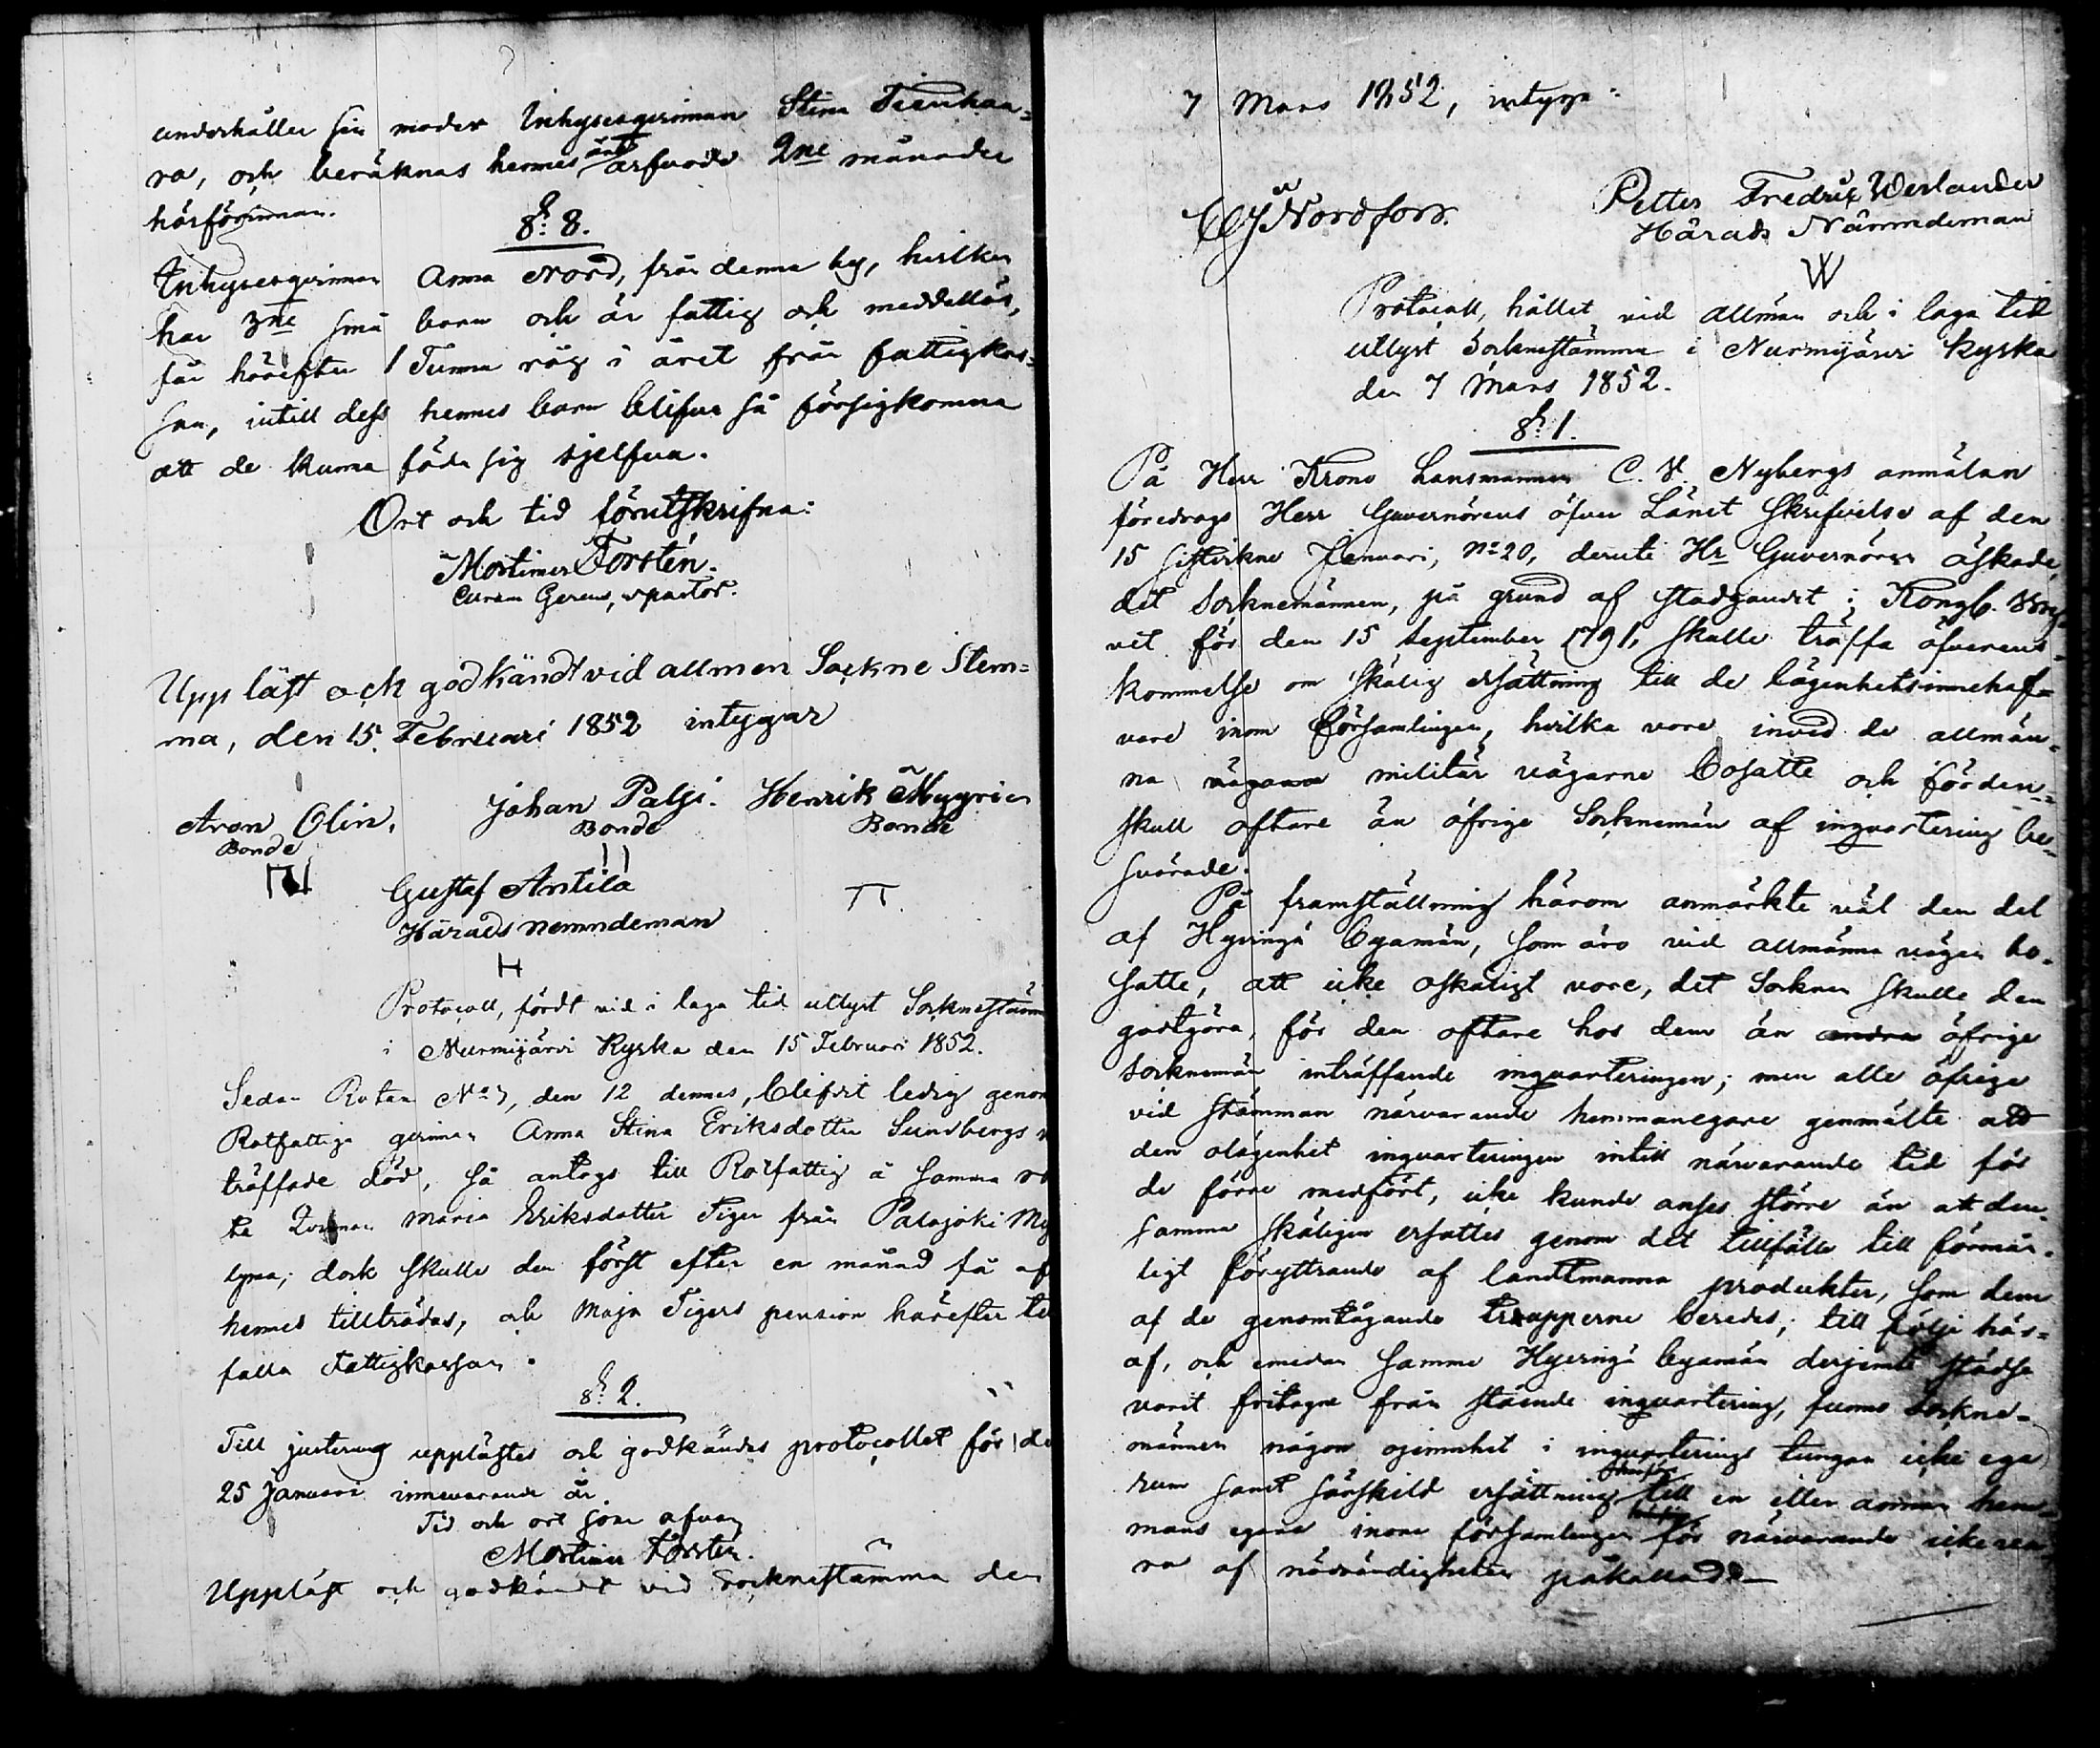 underhåller sin moder Inhysesqvinnan Stina Tienhaa-
ra, och beräknas hennes årsfvode 2ne månader
härförinnan.
§. 8.
Inhysesqvinnan Anna Nord, från denna by, hvilken
har 3ne små barn och är fattig och meddellös,
får härefter 1 Tunna råg i året från fattigkas-
san, intill dess hennes barn blifva så försigkomna
att de kunna föda sig sjelfva.
Ort och tid förutskrifna:
Mortimer Forstén.
Curam Gerens, v pastor.
Uppläst ock godkändt vid allmen Sockne Stem-
ma, den 15. Februari 1852 intygar
Aron Olin, Johan Palsi. Henrik Myyrien
Bonde Bonde Bonde
Gustaf Antila
Härads nemndeman
H
Protocoll, fördt vid i laga tid utlyst Socknestäm
i Nurmijärvi Kyrka den 15 Februari 1852.
Sedan Rotan No 7, den 12 dennes, blifvit ledig genom
Rotfattige qvinnan Anna Stina Eriksdotter Sundbergs
träffade död, så antogs till Rotfattig å samma ro
te Qvinnan Maria Eriksdotter Tiger från Palojoki My
lyna; dock skulle den först efter en månad få af
hennes tillträdas, och Maja Tigers pension härefter til
falla Fattigkassan.
§. 2.
Till justering upplästes och godkändes protocollet för de
25 Januari innevarande år.
Tid och ort som ofvan
Mortimer Forstén.
Uppläst och godkändt vid Socknestämma den
7 Mars 1852, intyga:
CJ Nordfors. Petter Fredrik Werlander
Härads Nämndeman
W
Protocoll, hållet vid allmän och i laga tid
utlyst Socknestämma i Nurmijärvi kyrka
den 7 Mars 1852.
§. 1.
På Herr Krono Länsmannen C. W. Nybergs anmälan
föredrogs Herr Guvernörens öfver Länet Skrifvelse af den
15 sistvikne Januari, No 20, deruti Hr Guvernören äskade,
det Socknemännen, på grund af stadgandet i Kongl. Bref-
vet för den 15 September 1791, skulle träffa öfverens-
kommelse om skälig ersättning till de lägenhetsinnehaf-
vare inom församlingen, hvilka vore invid de allmän-
na vägarna militär vägarne bosatte och förden-
skull oftare än öfrige Socknemän af inqvartering be-
svärade.
På framställning härom anmärkte väl den del
af Hyvingä byamän, som äro vid allmänna vägen bo-
satte, att icke oskäligt vore, det Socknen skulle dem
godtgöra, för den oftare hos dem än andra öfrige
socknemän inträffande inqvarteringen; men alle öfrige
vid stämman närvarande hemmanegare genmälte att
den olägenhet inqvarteringen intill närvarande tid för
de förre medfört, icke kunde anses större än att den-
samma skäligen ersattes genom det tillfälle till förmån-
ligt föryttrande af landtmanna produkter, som dem
af de genomtågande trupperne beredes; till följe här-
af, och emedan samme Hyvingä byamän derjemte städse
varit fritagne från stående inqvartering, funno Sockne-
männen någon ojemnhet i inqvarterings tungan icke ega
rum samt särskild ersättning till en eller annan hem-
mans egare inom församlingen för närvarande icke va-
ra af nödvändigheten påkallad.